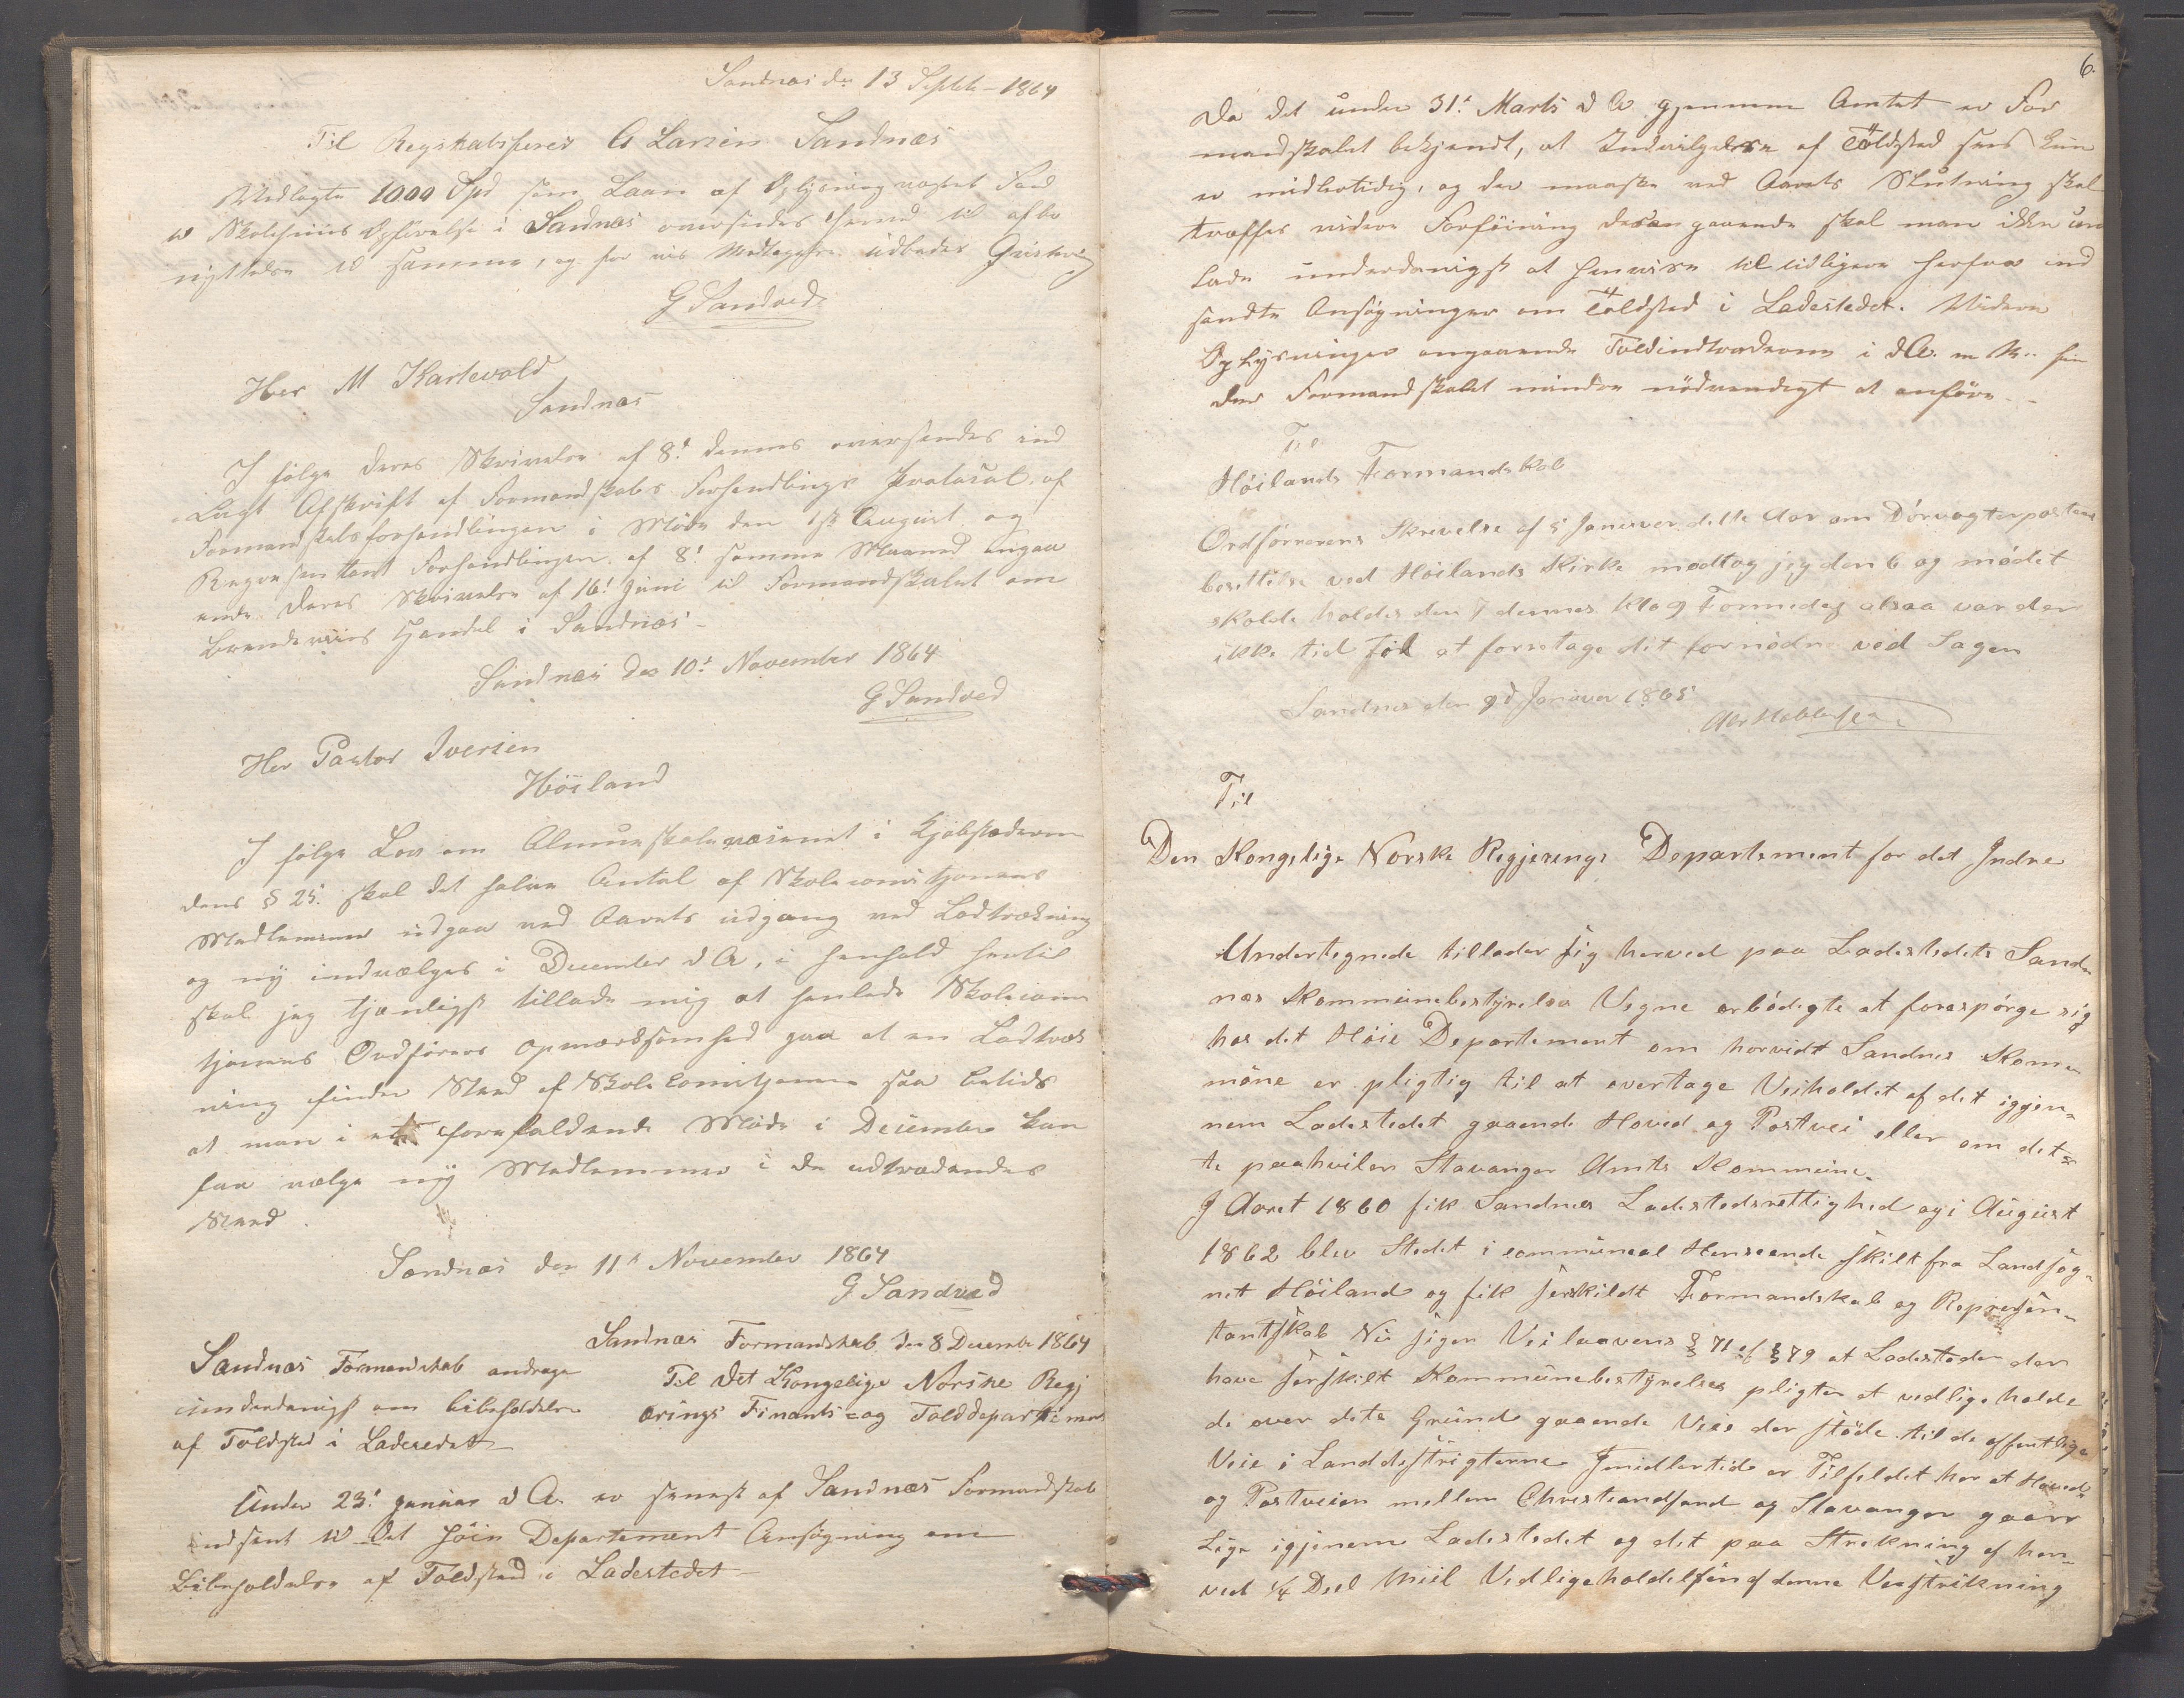 Sandnæs den 13 Septbr - 1864
Til Regnskabsfører A Larsen Sandnæs
Vedlagte 1000 Spd som Laan af Oplysningsvæsnets Fond
til Skolehuus Opførelse i Sandnæs oversendes herved til afbe
nyttelse til samme, og for vis Modtagelse udbedes Qvitering
G Sandved
Herr M Kartevold
Sandnæs
I følge Deres Skrivelse af 8d dennes oversendes ind
Lagt Afskrift af Formandskabs Forhandlings Protocol af
Formandskabsforhandlingen i Møde den 1st August og
Repræsentant Forhandlingen af 8d samme Maaned angaa
ende Deres Skrivelse af 16d Juni til Formandskabet om
Brændeviins Handel i Sandnæs -
Sandnæs den 10d November 1864
G Sandved
Her Pastor Iversen
Höiland
I følge Lov om Almueskolevæsenet i Kjøbstæderne
dens § 25 skal det halve Antal af Skolecomitjonens
Medlemmer udgaa ved Aarets udgang ved Lodtrækning
og ny indvælges i December d A, i henhold hertil
skal jeg tjenligst tillade mig at henlede Skolecom
tjonens Ordførers Opmærksomhed paa at en Lodtræk
ning finder Sted af Skole Comitjonen saa betids
at man i et forefaldende Møde i December kan
faa vælge ny Medlemmer i de udtrædendes
Sted.
Sandnæs den 11d November 1864
G. Sandved
Sandnæs Formandskab den 8 December 1864
Sandnæs Formandskab andrage
underdanigst om bibeholdelse
af Toldsted i Ladestedet
Til Det Kongelige Norske Regj
erings Finants- og Tolddepartement
Under 23d Januar d A. er senest af Sandnæs Formandskab
indsent til det høie Departement Ansøgning om
Bibeholdelse af Toldsted i Ladestedet -
6.
Da det under 31d Marts d A gjennem Amtet er For
mandskabet bekjendt, at Indvilgelsen af Toldsted her kun
er midlertidig, og der maaske ved Aarets Slutning skal
træffes videre Forføining desangaaende skal man ikke und
lade underdanigst at henvise til tidligere herfra ind
sendte Ansøgninger om Toldsted i Ladestedet. Videre
Oplysninger angaaende Toldindtræderne i d A. m. K. fin
der Formandskabet mindre nödvendigt at anföre -
Til
Höilands Formandskab
Ordförerens Skrevelse af 5 Januver dette Aar om Dörvogterpostens
besettelse ved Höilands Kirke modtog jeg den 6 og mödet
skolde holdes den 7 dennes Klo 9 Formedag alsaa var der
ikke tid Til at foretage det fornödne ved Sagen
Sandnes den 9d Januver 1865
Til
Den Kongelige Norske Regjerings Departement for det Indre
Undertegnede tillader sig herved paa Ladestedets Sand
næs Kommunebestyrelses Vegne erbödigts at forespörge sig
hos det Höie Departement om horvidt Sandnes Kom-
mune er pligtig til at overtage Veiholdet af det iggjen-
nem Ladestedet gaaende Hoved og Postvei eller om det-
te paahviler Stavanger Amts Kommune.
I Aaret 1860 fik Sandnes Ladestedsrettighed og i August
1862 blev Stedet i communeal Henseende skilt fra Landsog-
net Höiland og fik serskildt Formandskab og Represen-
tantskab Nu siger Veilaavens § 71 cf § 79 at Ladesteder der
have serskilt Kommunebestyrelse pligter at vedligeholde
de over dets Grund gaaende Veie der støde til de offentlige
Veie i Landdistrigterne Imidlertid er Tilfeldet her at Hoved-
og Postveien mellem Christiandsand og Stavanger gaar
Lige igjenem Ladestedet og det paa Strekning af hen-
ved ¼ Deel Miil Vedligeholdelsen af denne Veistrikning